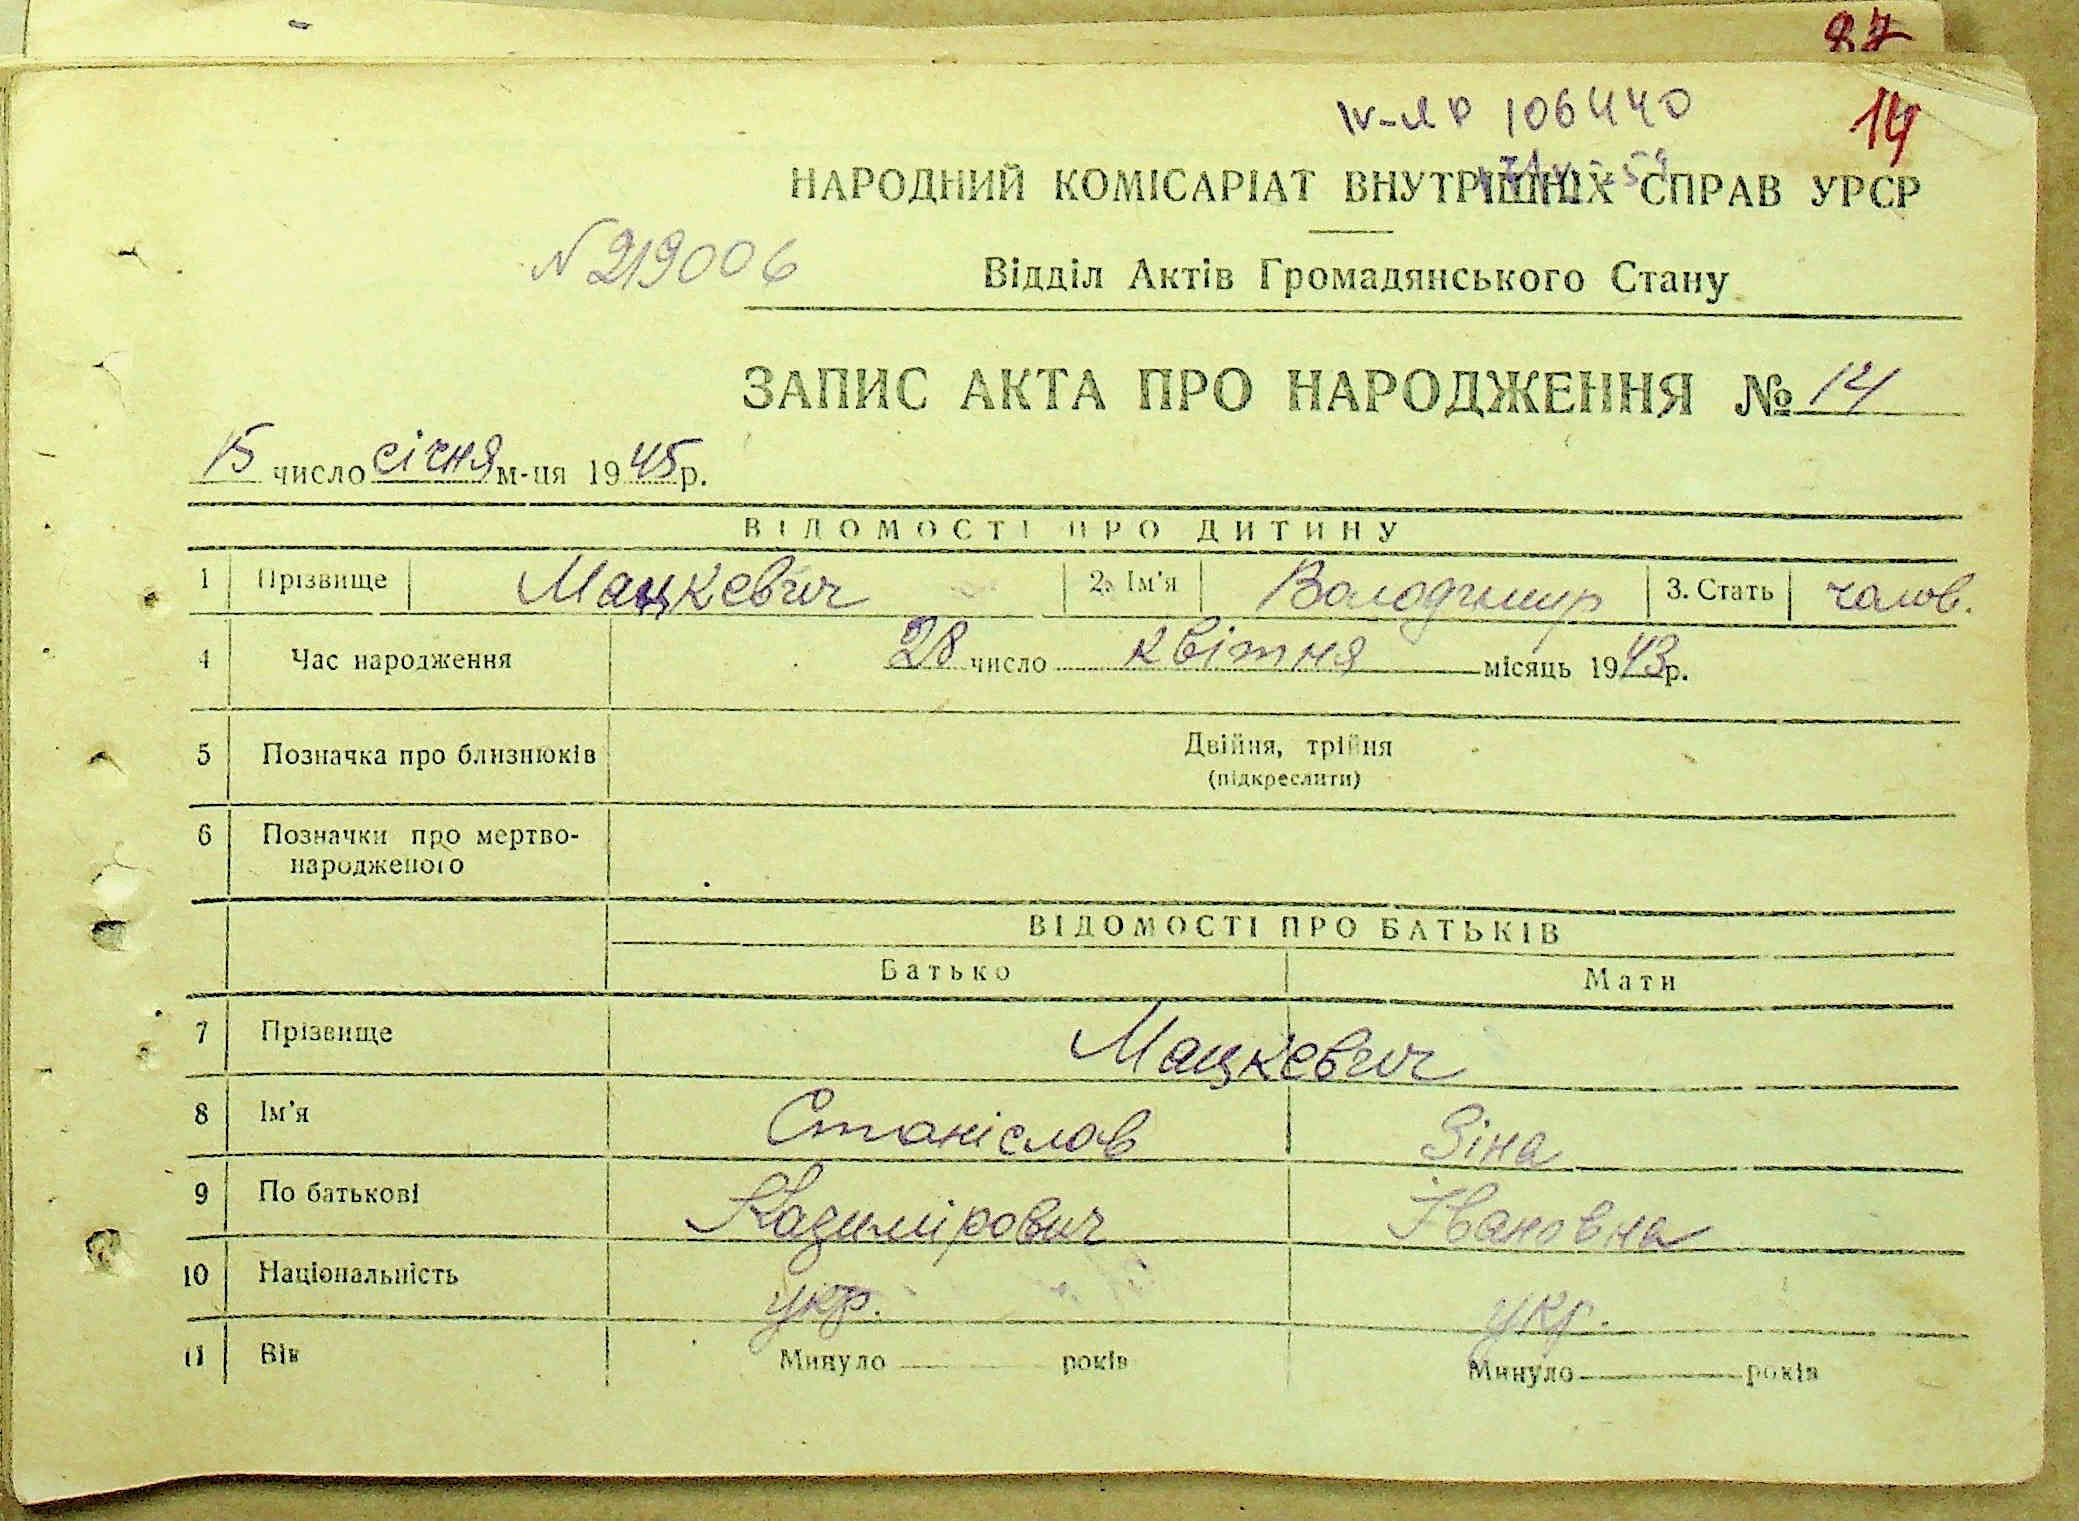 87
IV-ЯР 106440
14
НАРОДНИЙ КОМІСАРІАТ ВНУТРІШНІХ СПРАВ УРСР
N 219006
Відділ Актів Громадянського Стану
ЗАПИС АКТА ПРО НАРОДЖЕННЯ № 14
15 число січня м-ця 1945 р.
ВІДОМОСТІ ПРО ДИТИНУ
1 Прізвище Мацкевич 2. Ім'я Володимир 3. Стать чолов.
4 Час народження 28 число квітня місяць 1943 р.
5 Позначка про близнюків Двійня, трійня
(підкреслити)
6 Позначки про мертво-
народженого
ВІДОМОСТІ ПРО БАТЬКІВ
Батько Мати
7 Прізвище Мацкевич
8 Ім'я Станіслав Зіна
9 По батькові Казимірович Івановна
10 Національність укр. укр.
11 Вік Минуло років Минуло років